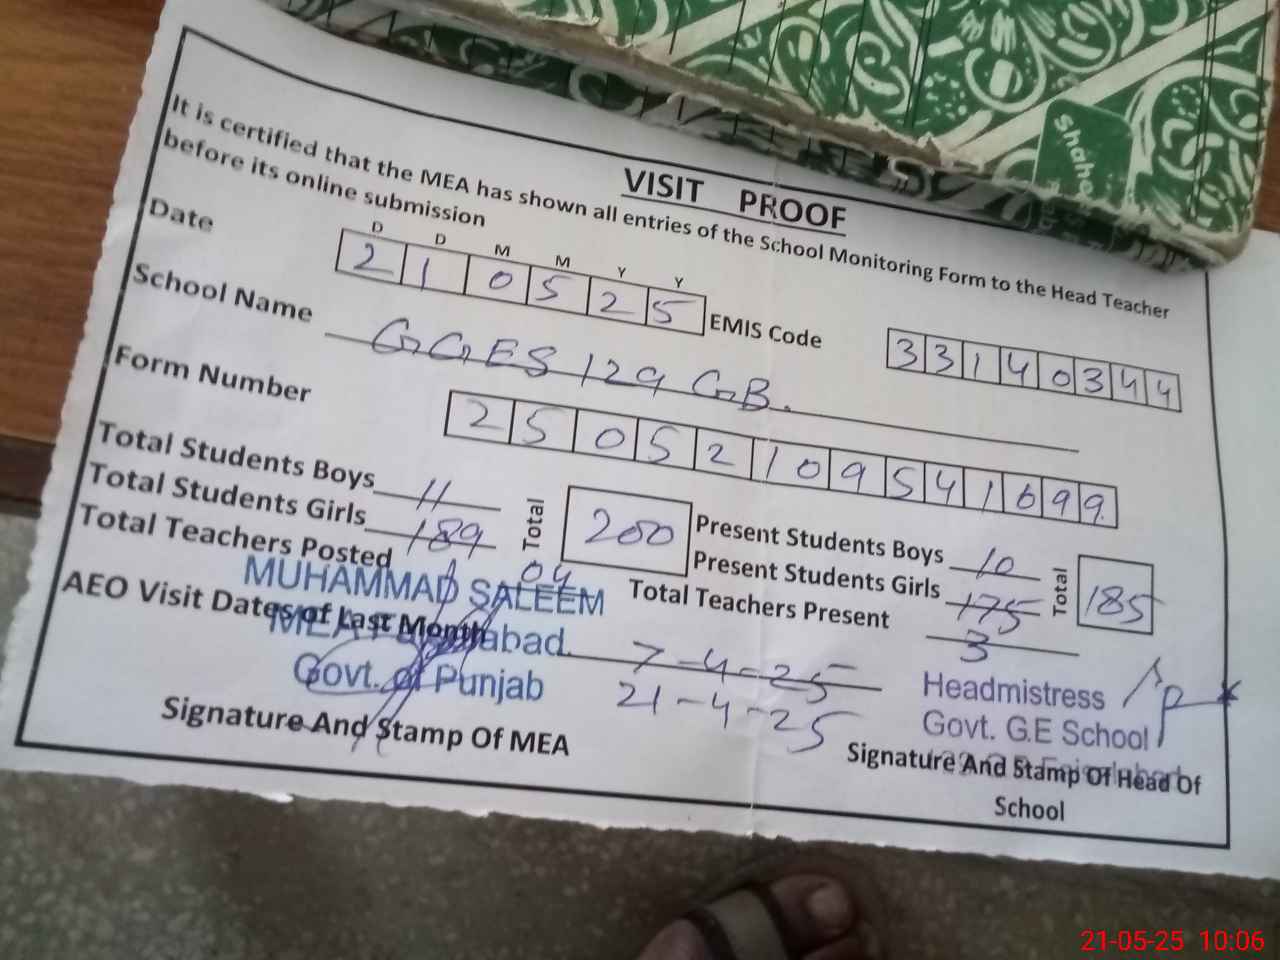 Shahe
VISIT PROOF
It is certified that the MEA has shown all entries of the School Monitoring Form to the Head Teacher
before its online submission
D D M M Y Y
Date 2 1 0 5 2 5 EMIS Code 3 3 1 4 0 3 4 4
School Name GGES 129 GB.
Form Number 2 5 0 5 2 1 0 9 5 4 1 6 9 9
Total Students Boys 11 Total 200 Present Students Boys 10 Total 185
Total Students Girls 189 Present Students Girls 175
Total Teachers Posted 04 Total Teachers Present 3
AEO Visit Dates of Last Month 7-4-25
21-4-25
MUHAMMAD SALEEM
MEA Faisalabad.
Govt. of Punjab
Signature And Stamp Of MEA
Headmistress
Govt. G.E School
Signature And Stamp Of Head Of
School
21-05-25 10:06